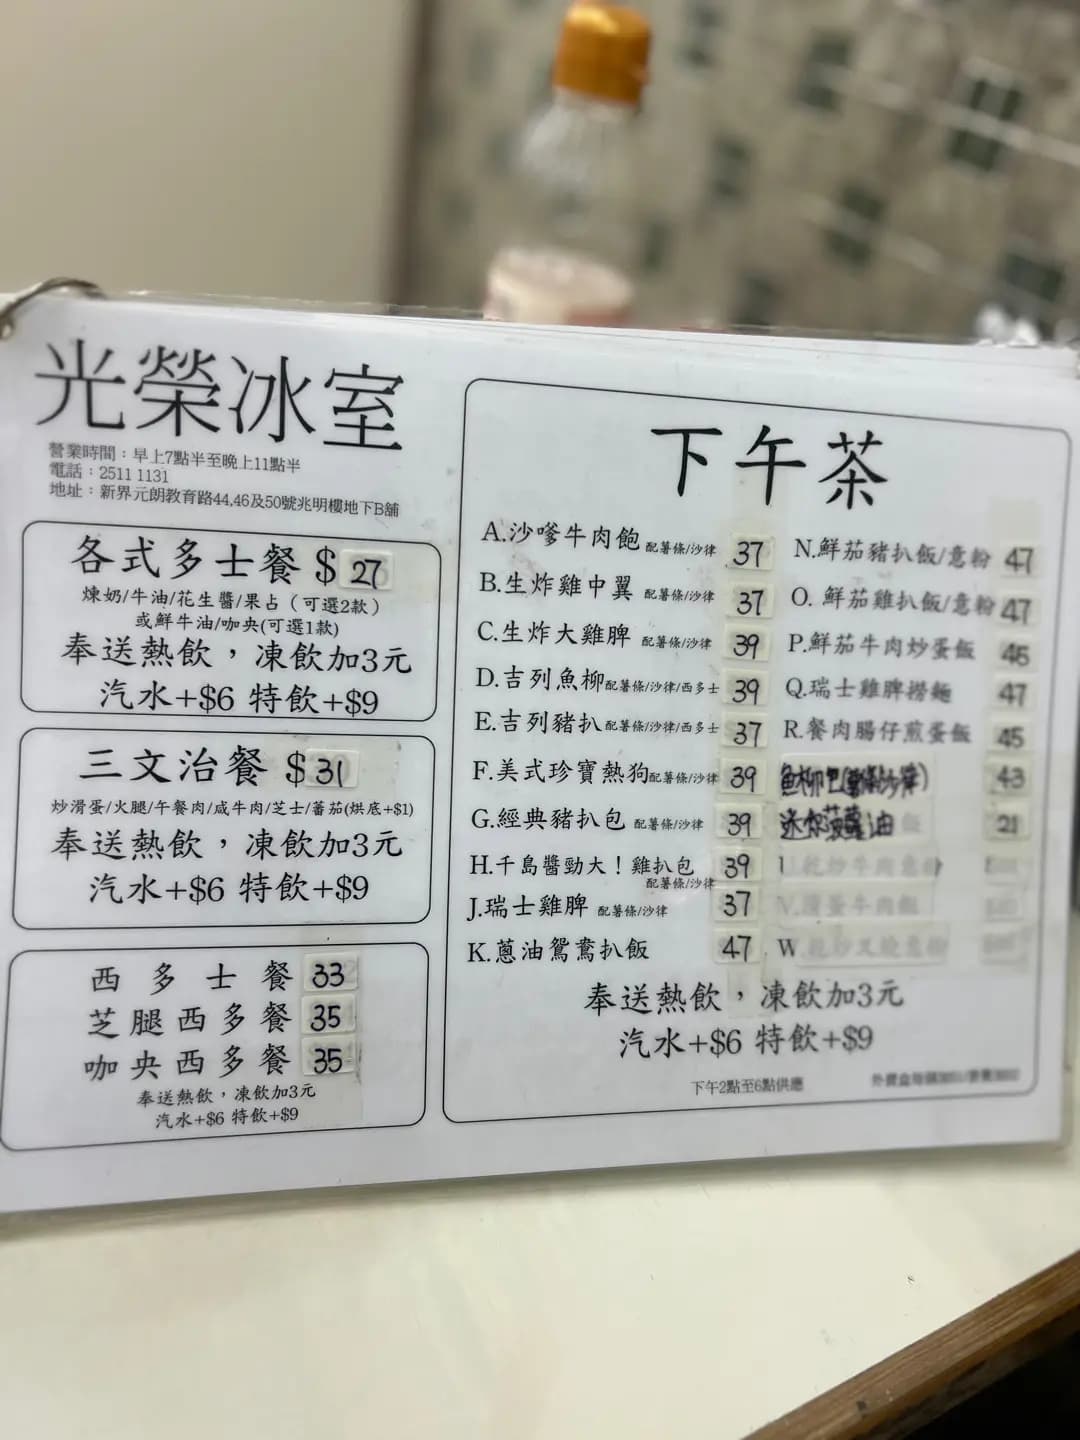 光榮冰室
營業時間：早上7點半至晚上11點半
電話：2511 1131
地址：新界元朗教育路44,46及50號兆明樓地下B舖
各式多士餐 $ 27
煉奶/牛油/花生醬/果占（可選2款）
或鮮牛油/咖央(可選1款)
奉送熱飲，凍飲加3元
汽水+$6 特飲+$9
三文治餐 $ 31
炒滑蛋/火腿/午餐肉/咸牛肉/芝士/蕃茄(烘底+$1)
奉送熱飲，凍飲加3元
汽水+$6 特飲+$9
西多士餐 33
芝腿西多餐 35
咖央西多餐 35
奉送熱飲，凍飲加3元
汽水+$6 特飲+$9
下午茶
A.沙嗲牛肉飽 配薯條/沙律 37
B.生炸雞中翼 配薯條/沙律 37
C.生炸大雞脾 配薯條/沙律 39
D.吉列魚柳 配薯條/沙律/西多士 39
E.吉列豬扒 配薯條/沙律/西多士 37
F.美式珍寶熱狗 配薯條/沙律 39
G.經典豬扒包 配薯條/沙律 39
H.千島醬勁大！雞扒包 39
配薯條/沙律
J.瑞士雞脾 配薯條/沙律 37
K.蔥油鴛鴦扒飯 47
N.鮮茄豬扒飯/意粉 47
O.鮮茄雞扒飯/意粉 47
P.鮮茄牛肉炒蛋飯 46
Q.瑞士雞脾撈麵 47
R.餐肉腸仔煎蛋飯 45
魚柳包(薯條沙律) 43
迷你菠蘿油 21
U.乾炒牛肉意粉
V.滑蛋牛肉飯
W.
奉送熱飲，凍飲加3元
汽水+$6 特飲+$9
下午2點至6點供應